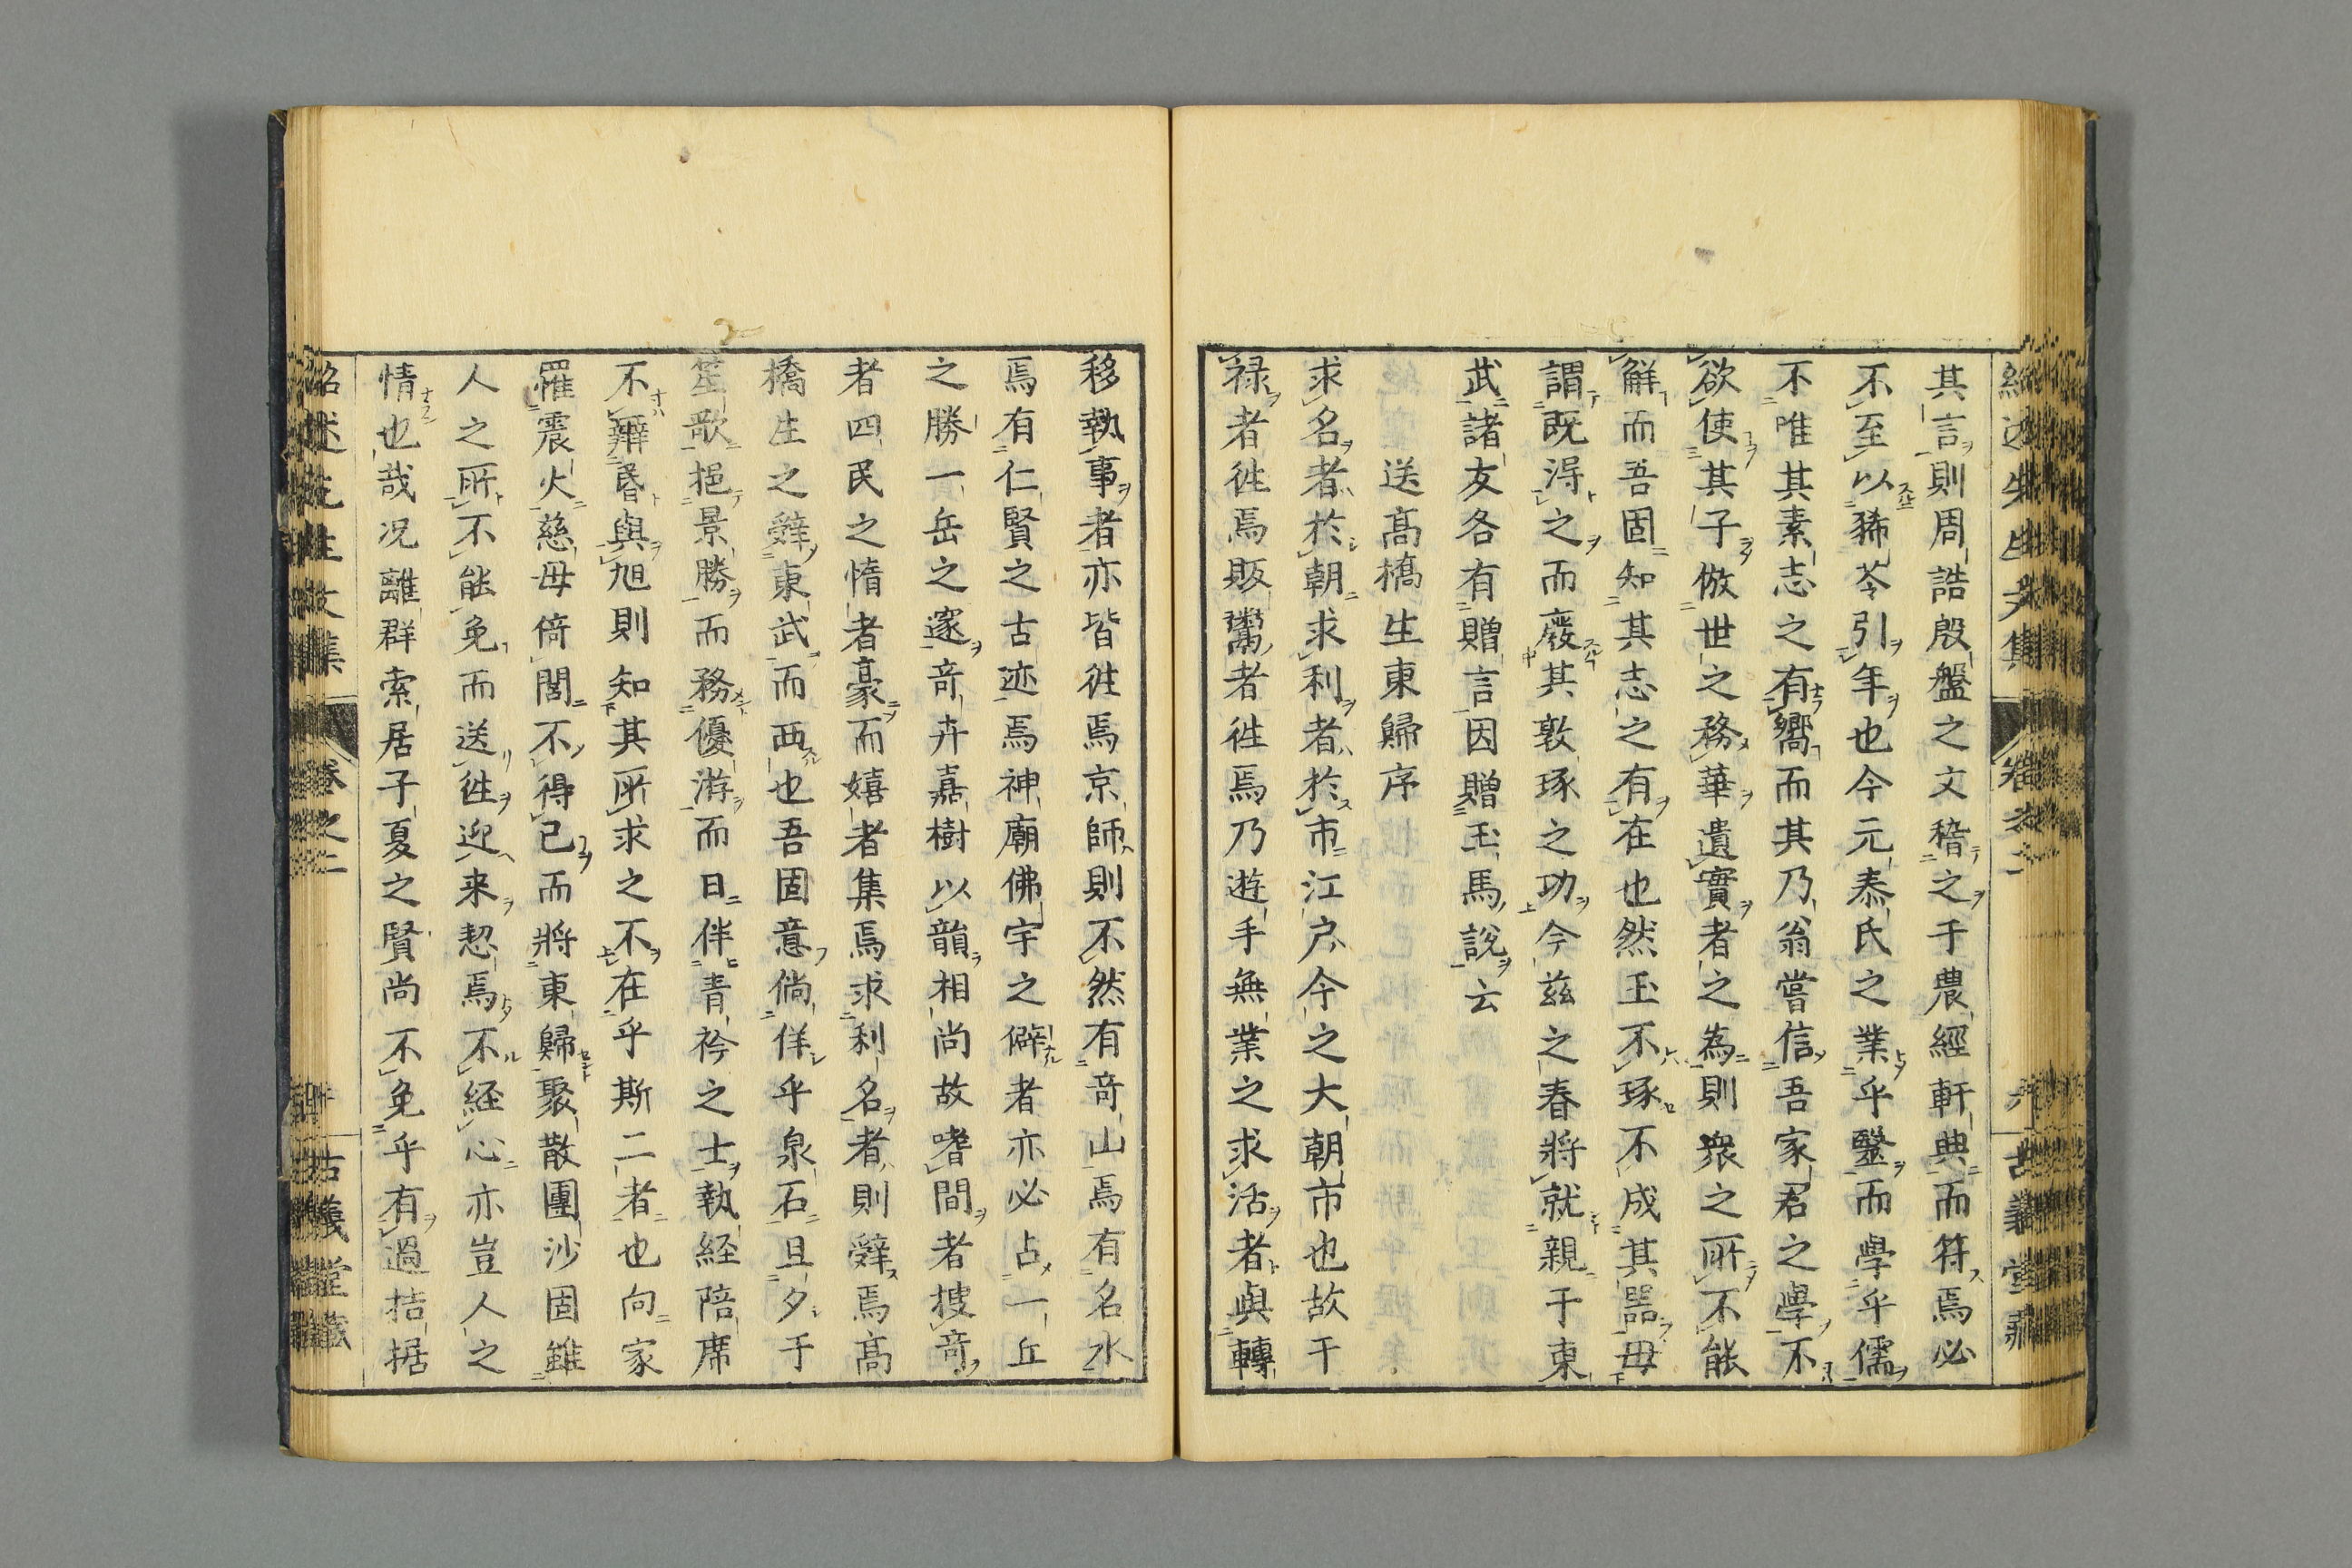 其言則周誥殷盤之文稽之于農經軒典而符焉必
不至以豨苓引年也今元泰氏之業乎毉而學乎儒
不唯其素志之有嚮而其乃翁嘗信吾家君之學不
欲使其子倣世之務華遺實者之為則衆之所不能
解而吾固知其志之有在也然玉不琢不成其器毋
謂既得之而廢其敦琢之功今茲之春將就親于東
武諸友各有贈言因贈玉馬說云
送髙橋生東歸序
求名者於朝求利者於市江戸今之大朝市也故干
禄者徃焉販鬻者徃焉乃遊手無業之求活者與轉
移執事者亦皆徃焉京師則不然有竒山焉有名水
焉有仁賢之古迹焉神廟佛宇之僻者亦必占一丘
之勝一岳之邃竒卉嘉樹以韻相尚故嗜間者搜竒
者四民之惰者豪而嬉者集焉求利名者則辤焉髙
橋生之辤東武而西也吾固意倘佯乎泉石旦夕于
笙歌挹景勝而務優游而日伴青衿之士執経陪席
不辨昏與旭則知其所求之不在乎斯二者也向家
罹震火慈母倚閭不得已而將東歸聚散團沙固雖
人之所不能免而送徃迎来恝焉不経心亦豈人之
情也哉况離群索居子夏之賢尚不免乎有過拮据
紹述先生文集
卷之二
古義堂藏